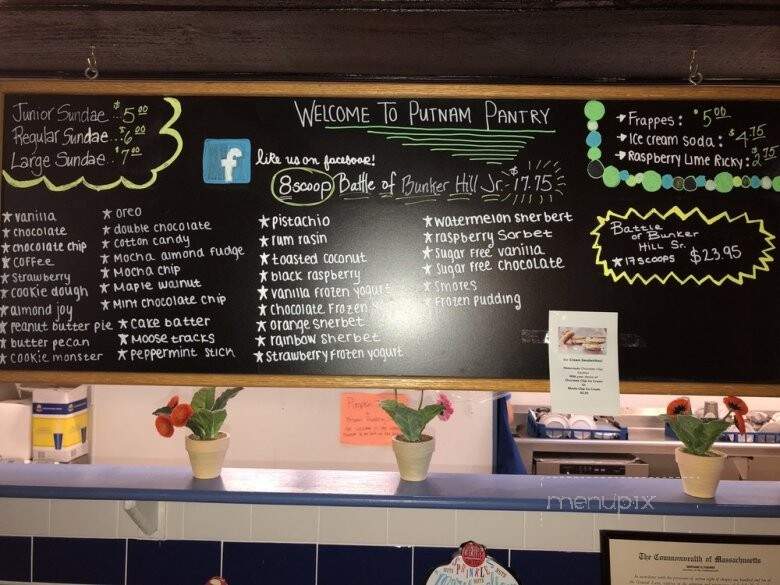 Junior Sundae...$5.00
Regular Sundae...$6.00
Large Sundae...$7.00
WELCOME TO PUTNAM PANTRY
f
like us on facebook!
8 scoop Battle of Bunker Hill Jr. $17.75
→ Frappes: $5.00
→ Ice cream soda: $4.75
→ Raspberry Lime Ricky: $2.75
Battle
of Bunker
Hill Sr.
★ 17 scoops $23.95
★ vanilla
★ chocolate
★ chocolate chip
★ coffee
★ strawberry
★ cookie dough
★ almond joy
★ peanut butter pie
★ butter pecan
★ cookie monster
★ oreo
★ double chocolate
★ cotton candy
★ mocha almond fudge
★ Mocha chip
★ Maple walnut
★ Mint chocolate chip
★ cake batter
★ Moose tracks
★ peppermint stick
★ pistachio
★ rum rasin
★ toasted coconut
★ black raspberry
★ vanilla frozen yogurt
★ chocolate frozen
★ orange sherbet
★ rainbow sherbet
★ strawberry frozen yogurt
★ watermelon sherbert
★ raspberry sorbet
★ sugar free vanilla
★ sugar free chocolate
★ smores
★ frozen pudding
Ice Cream Sandwiches!
menupix
The Commonwealth of Massachusetts